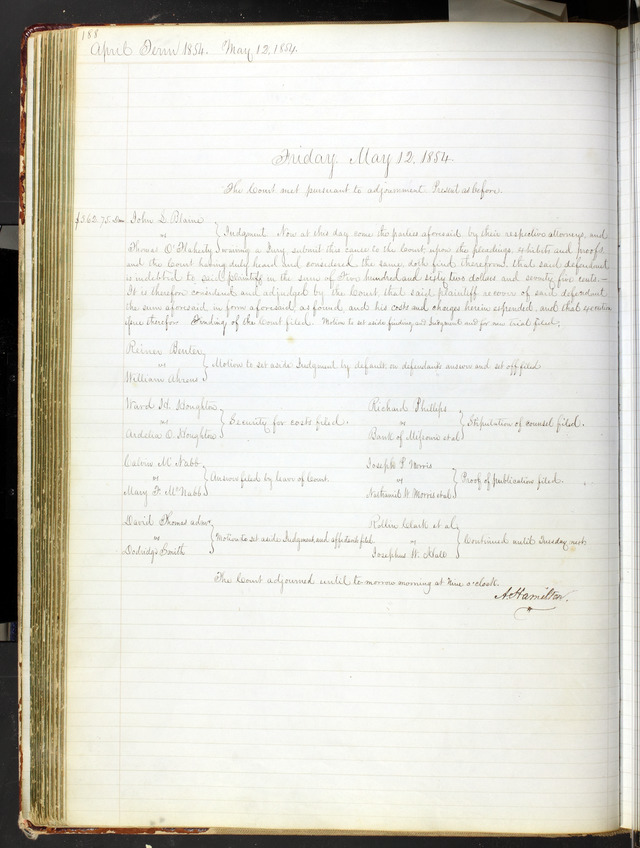 188
April Term 1854. May 12, 1854.
Friday, May 12, 1854
The Court met pursuant to adjournment. Present as before.
$562.75.
John L. Blaine
vs } Judgment Now at this day come the parties aforesaid by their respective attorneys, and
Thomas O'Flaherty waiving a Jury submit this cause to the Court upon the pleadings, exhibits and proofs
and the Court having duly heard and considered the same doth find therefrom that said defendant
is indebted to said plaintiff in the sum of Five hundred and sixty two dollars and seventy five cents. –
It is therefore considered and adjudged by the Court that said plaintiff recover of said defendant
the sum aforesaid in form aforesaid, as found, and his costs and charges herein expended, and that execution
issue therefor. Finding of the Court filed. Motion to set aside finding and Judgment and for new trial filed.
Reiner
vs } Motion to set aside Judgment by default, on defendants answer and set off filed
William Ahrens
Ward H. Houghton
vs } Security for costs filed.
Ardelia O. Houghton
Richard Phillips
vs } Stipulation of counsel filed.
Bank of Missouri et al
Calvin McNabb
vs } Answer filed by leave of Court.
Mary F. McNabb
Joseph P. Norris
vs } Proof of publication filed.
Nathaniel W. Morris et al
David Thomas admr
vs } Motion to set aside Judgment and affidavit filed
Smith
Rollin Clark et al
vs } Continued until Tuesday next
Josephus W. Hall
The Court adjourned until to-morrow morning at nine o'clock.
A. Hamilton.